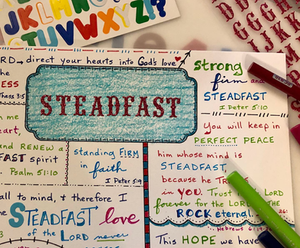 JKLMNOP
UVWXYZ
direct your hearts into God's love
STEADFAST
strong
firm and
STEADFAST
I Peter 5:10
you will keep in
PERFECT PEACE
him whose mind is
STEADFAST
because he
in YOU. Trust
LORD
forever for the LORD
ROCK eternal.
This HOPE we have
heart,
and RENEW a
FAST spirit
Psalm 51:10
standing FIRM
in faith
I Peter 5:9
all to mind, & therefore I
STEADFAST love
of the LORD never